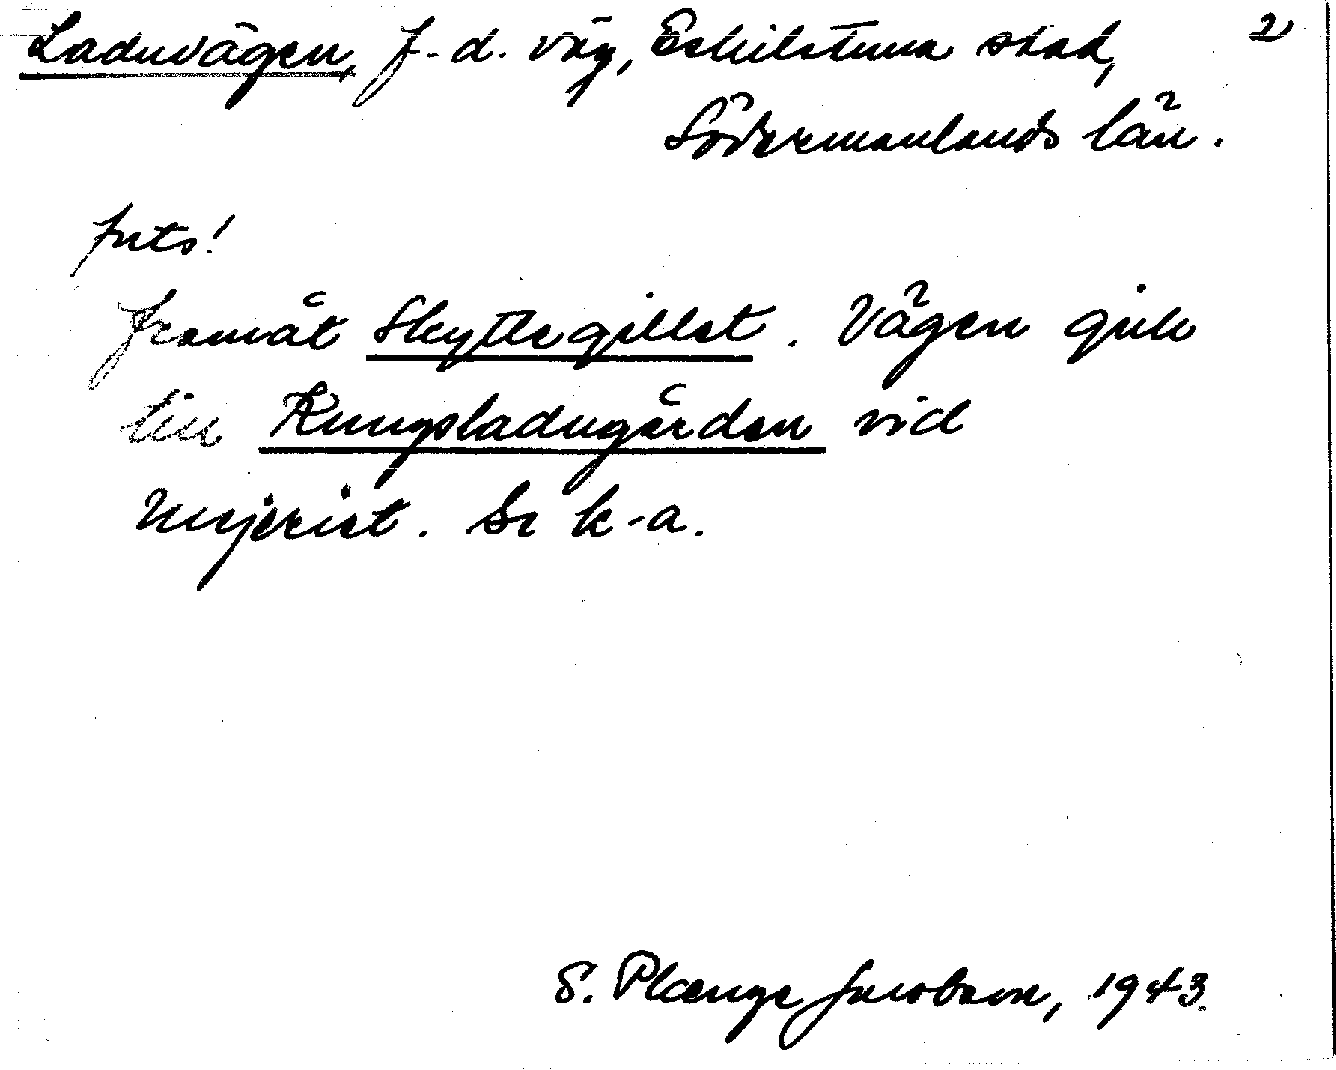 Laduvägen, f.d. väg, Eskilstuna stad, 2
Södermanlands län.
forts!
framåt Skyttegillet. Vägen gick
till Kungsladugården vid
mejeriet. Se k-a.
S. Plænge Jacobson, 1943.